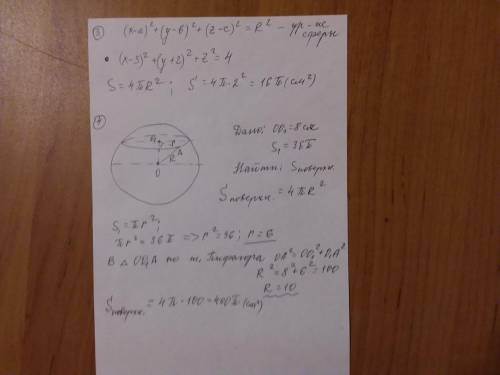 ③ (x-a)²+(y-b)²+(z-c)²=R² - ур-ие
сферы
• (x-3)²+(y+2)²+z²=4
S=4πR²; S=4π·2²=16π(см²)
④
Дано: OO₁=8см
S₁=36π
Найти: Sповерхн.
Sповерхн.=4πR²
O₁ r A
R
O
S₁=πr²;
πr²=36π => r²=36; r=6
В △OO₁A по т. Пифагора OA²=OO₁²+O₁A²
R²=8²+6²=100
R=10
Sповерхн.=4π·100=400π(см²)